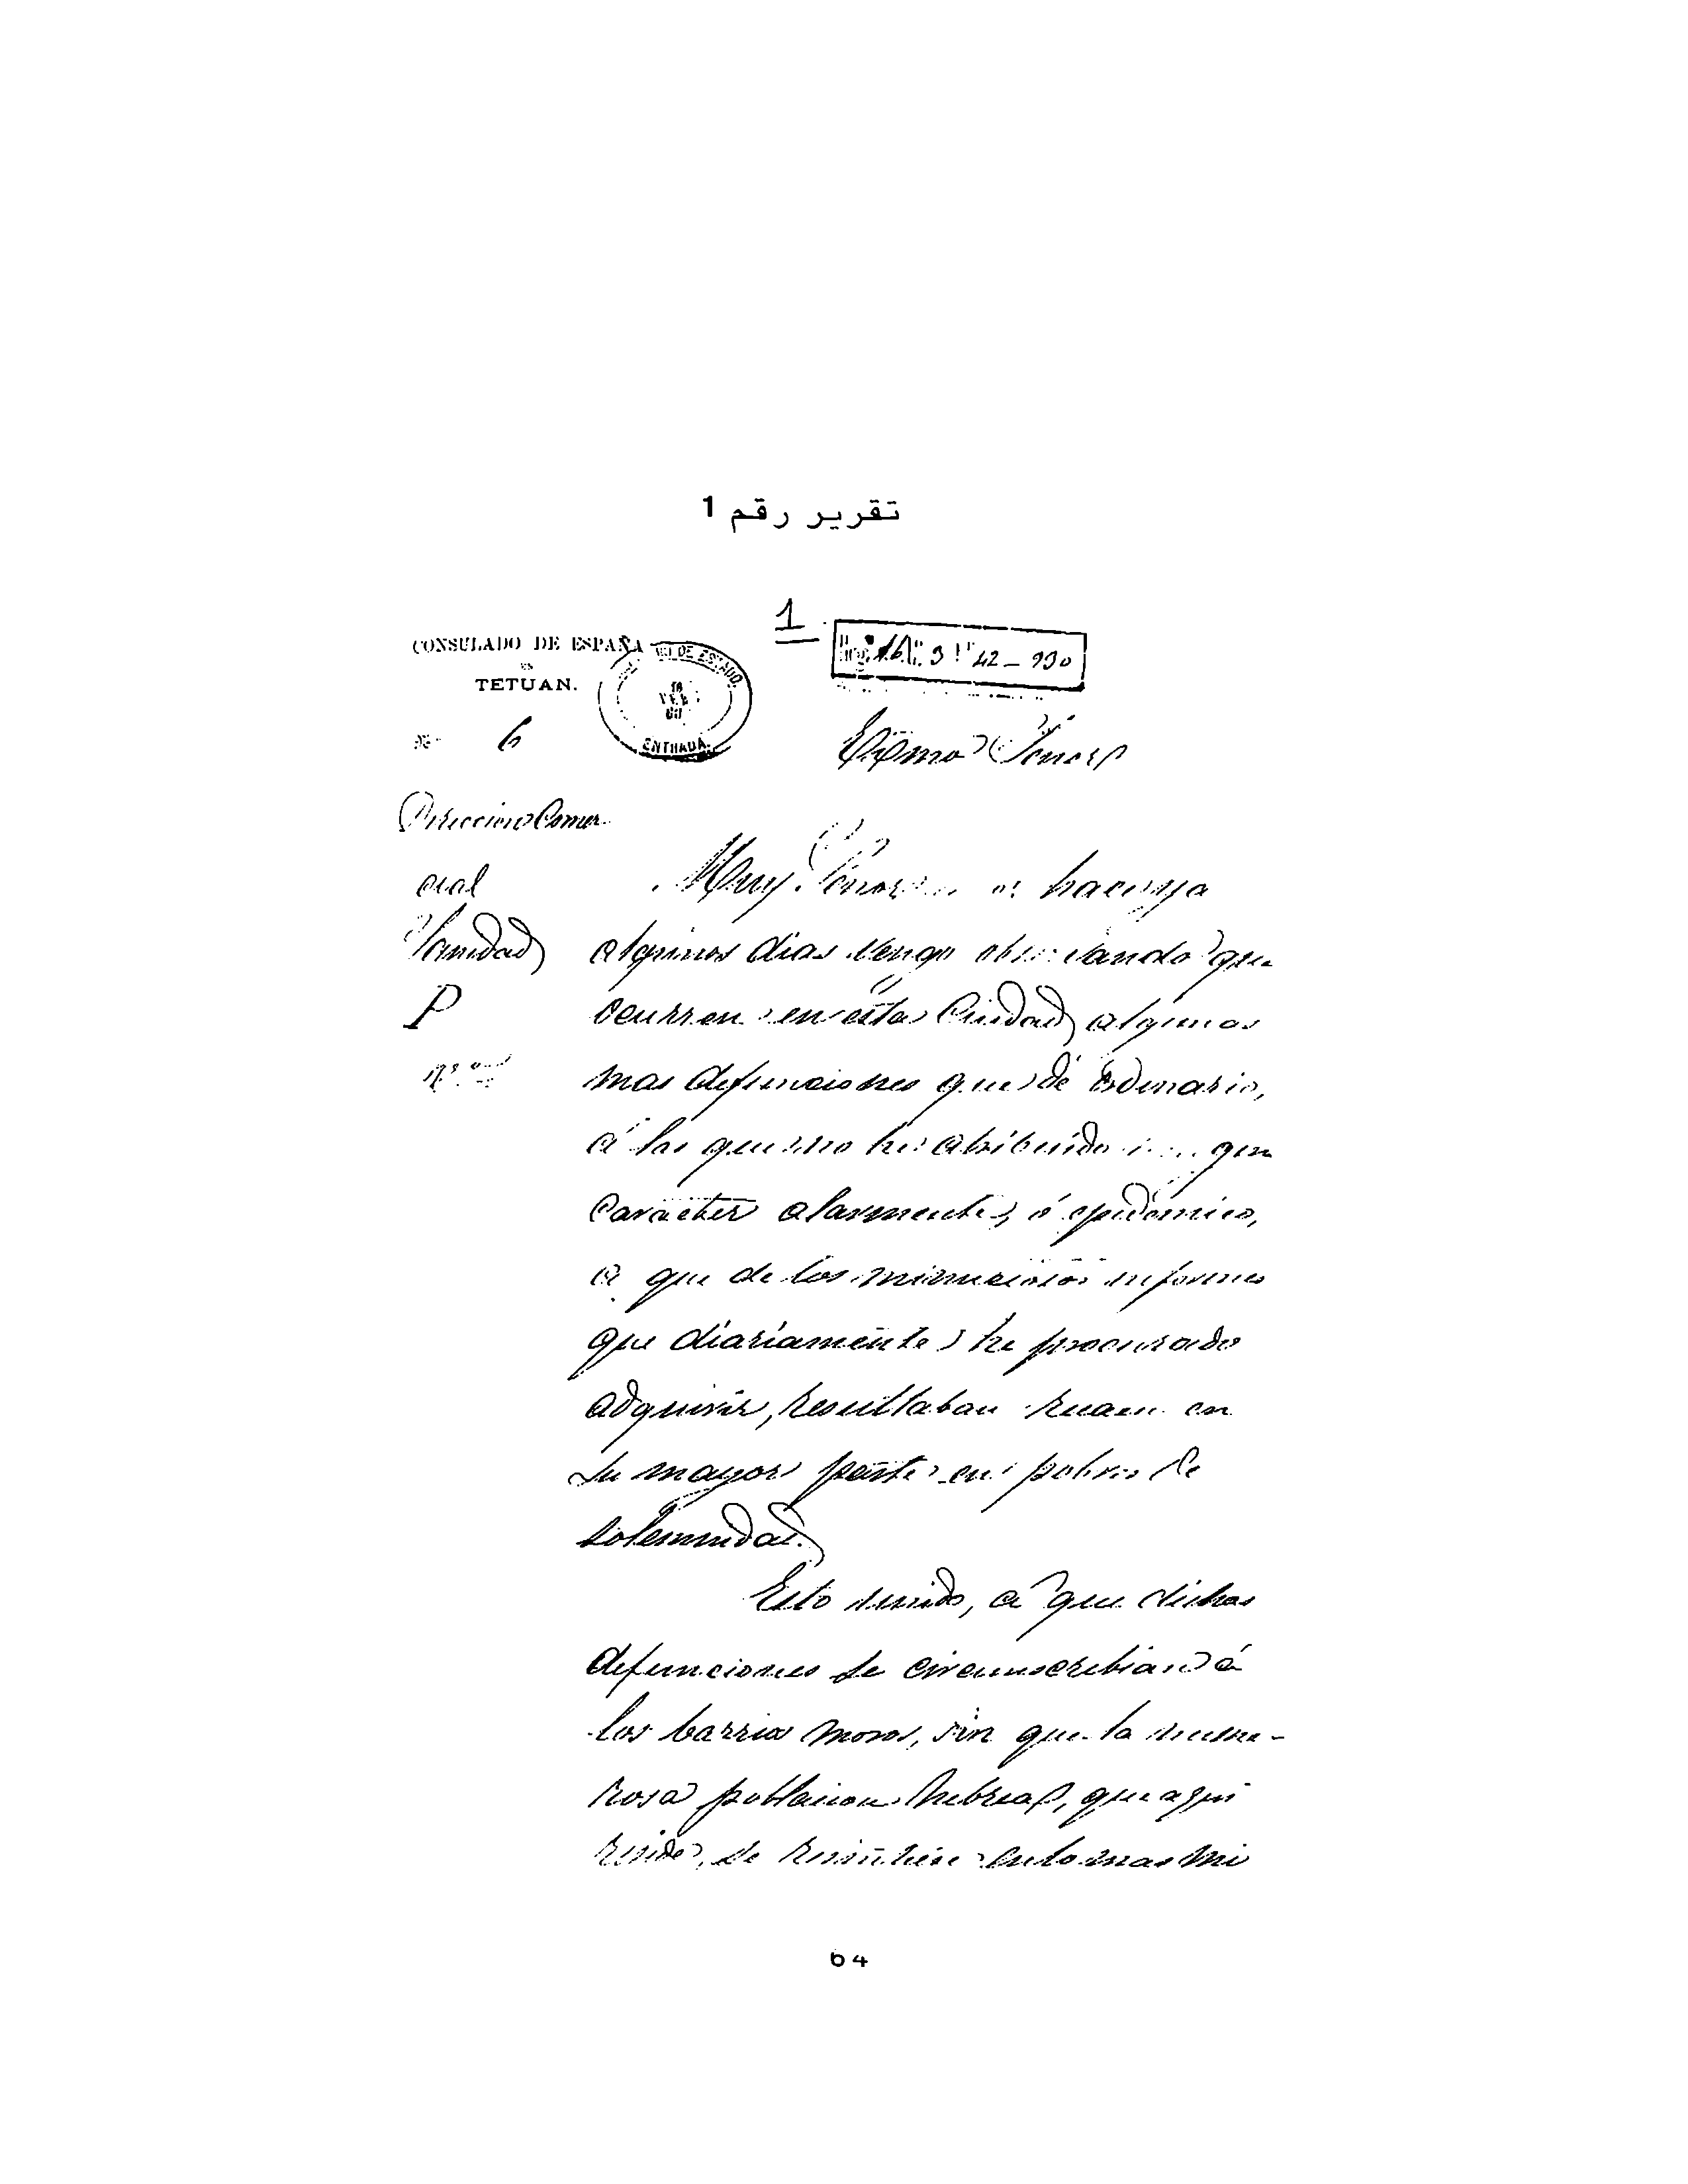 تقرير رقم 1
1
CONSULADO DE ESPAÑA
EN
TETUAN.
DE ESTADO.
ENTRADA
42 - 990
Nº 6
Exmo Señor
Direccion Comer
cial
Sanidad
P
Muy Señor hace ya
algunos dias vengo observando que
ocurren en esta Ciudad algunas
mas defunciones que de ordinario,
á las que no he atribuido que
caracter alarmante, ó epidemico,
que de los minuciosos informes
que diariamente he procurado
adquirir, resultaban en
su mayor parte en pobres de
solemnidad.
Esto unido, á que dichas
defunciones se circunscribian á
los barrios moros, sin que la nume-
rosa poblacion hebrea, que aqui
reside, se resintiese en lo mas mi
64